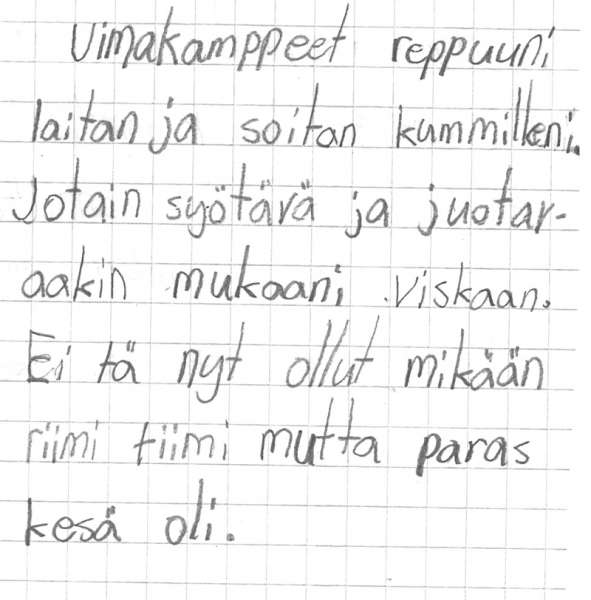 Uimakamppeet reppuuni
laitan ja soitan kummilleni.
Jotain syötävä ja juotar-
aakin mukaani viskaan.
Ei tä nyt ollut mikään
riimi tiimi mutta paras
kesä oli.